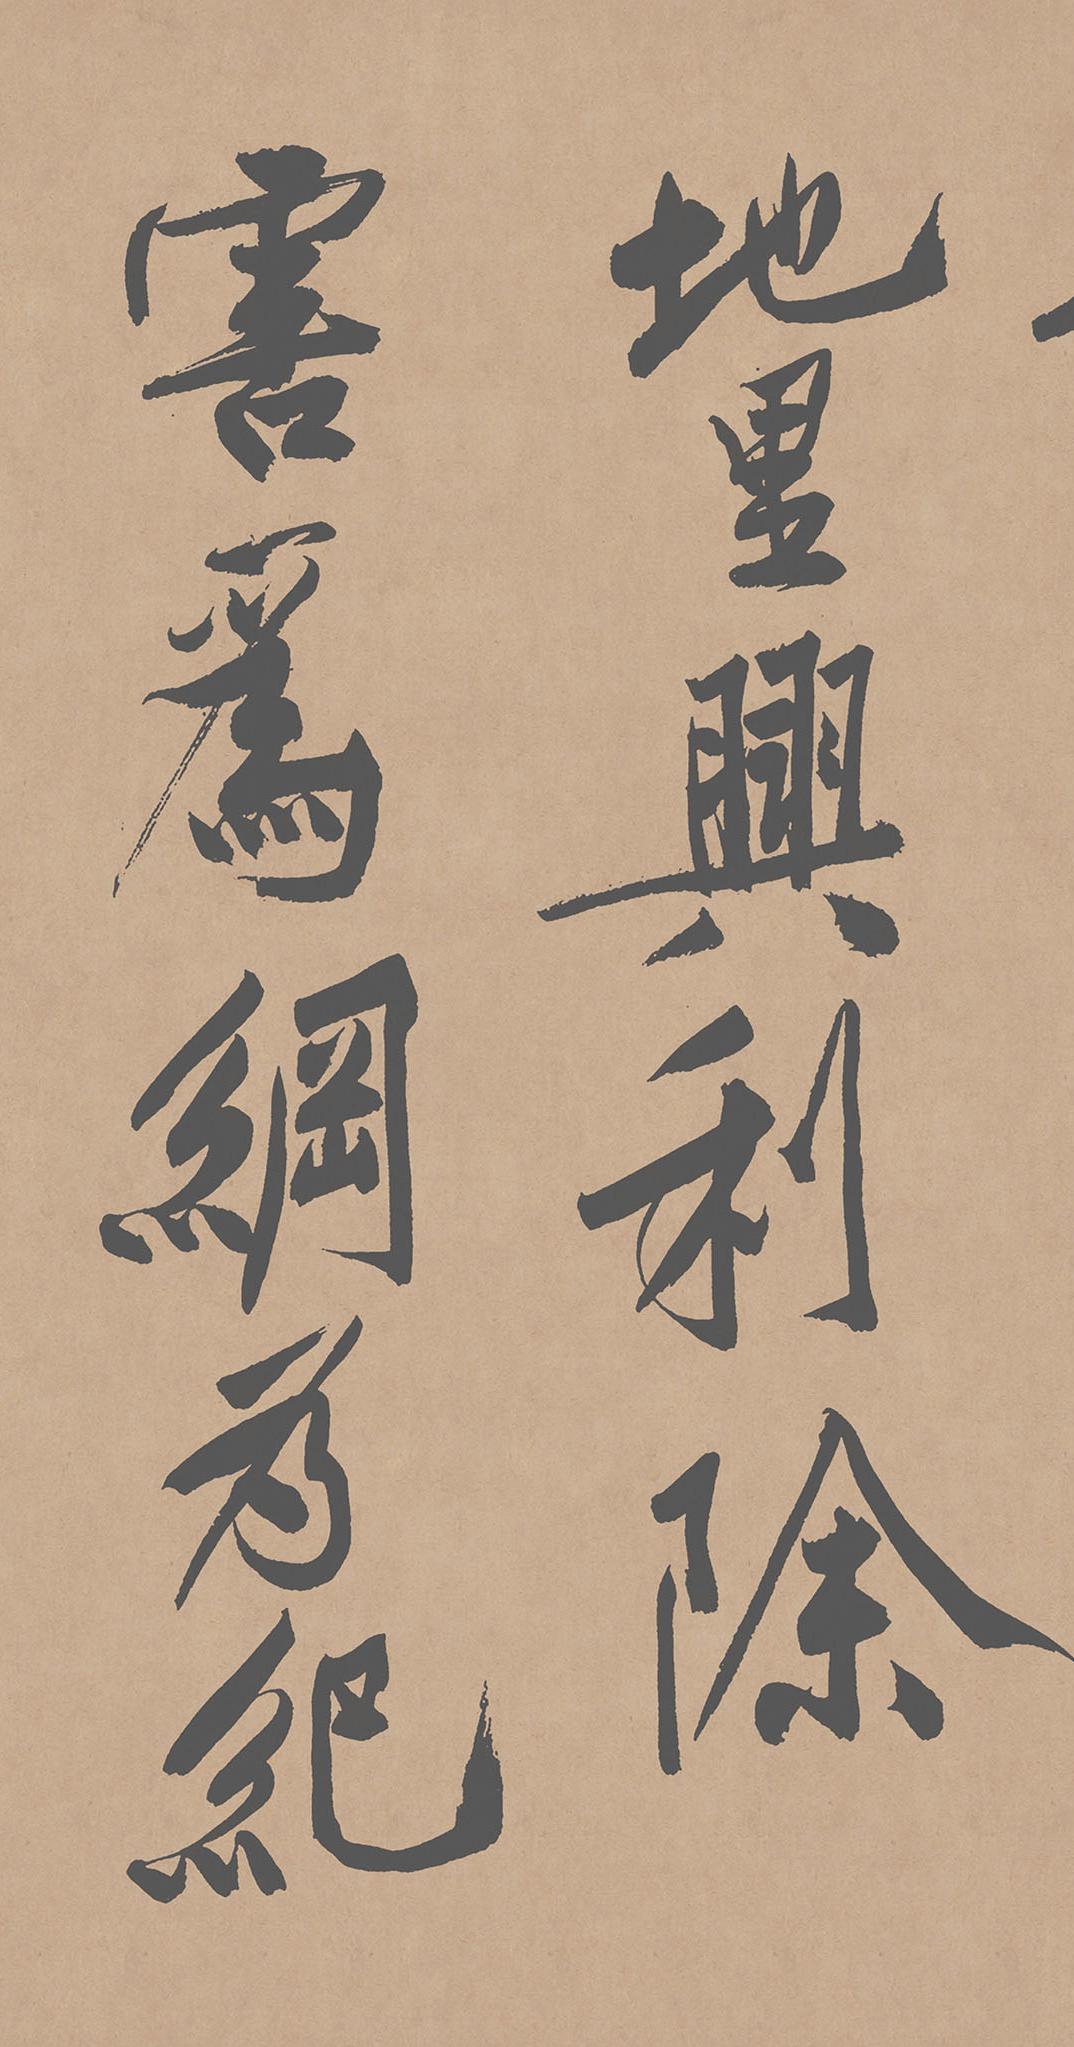 地里興利除
害為綱為紀